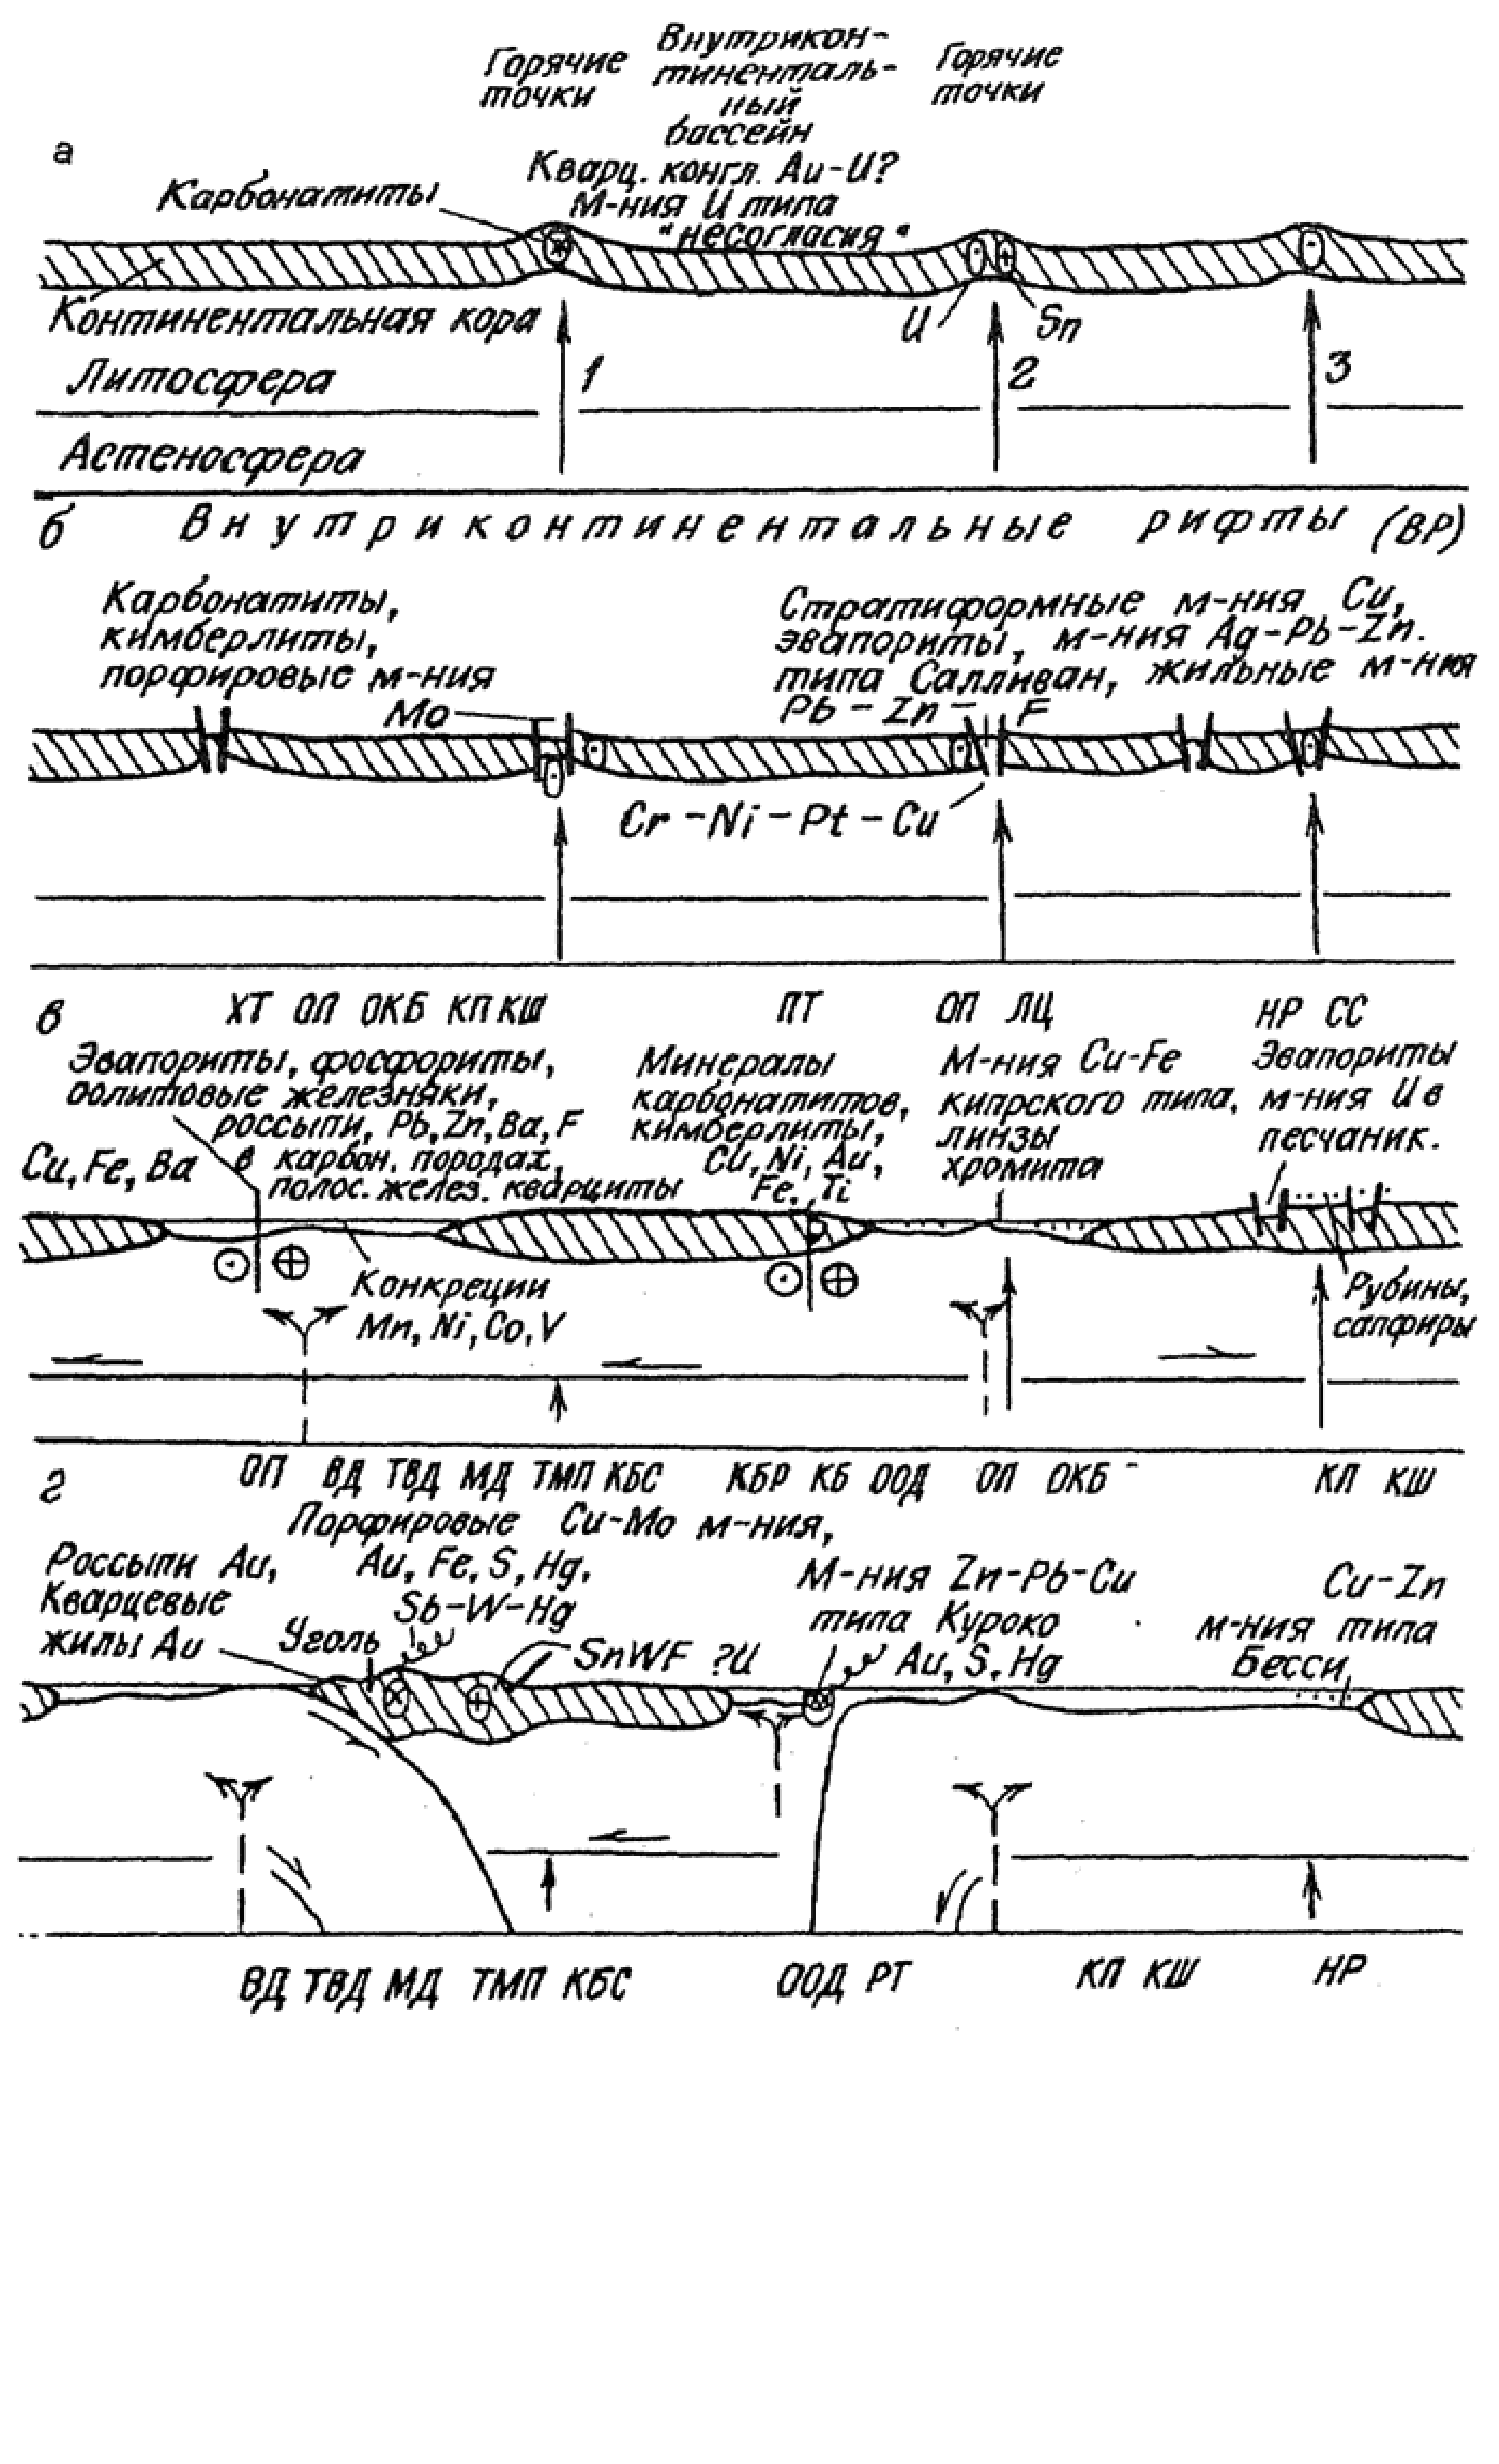 Горячие точки
Внутрикон-
тиненталь-
ный
бассейн
Горячие точки
а
Кварц. конгл. Au-U?
Карбонатиты
М-ния U типа
"несогласия"
Континентальная кора
U
Sn
Литосфера
1
2
3
Астеносфера
б
Внутриконтинентальные рифты (ВР)
Карбонатиты,
кимберлиты,
порфировые м-ния
Mo
Стратиформные м-ния Cu,
эвапориты, м-ния Ag-Pb-Zn.
типа Салливан, жильные м-ния
Pb-Zn-F
Cr-Ni-Pt-Cu
в
ХТ ОП ОКБ КП КШ
ПТ
ОП ЛЦ
НР СС
Эвапориты, фосфориты,
оолитовые железняки,
россыпи, Pb, Zn, Ba, F
в карбон. породах,
полос. желез. кварциты
Cu, Fe, Ba
Минералы
карбонатитов,
кимберлиты,
Cu, Ni, Au,
Fe, Ti
М-ния Cu-Fe
кипрского типа,
линзы
хромита
Эвапориты
м-ния U в
песчаник.
Конкреции
Mn, Ni, Co, V
Рубины,
сапфиры
г
ОП ВД ТВД МД ТМП КБС
КБР КБ ООД ОП ОКБ
КП КШ
Порфировые Cu-Mo м-ния,
Au, Fe, S, Hg,
Sb-W-Hg
Россыпи Au,
Кварцевые
жилы Au
Уголь
SnWF ?U
М-ния Zn-Pb-Cu
типа Куроко
Au, S, Hg
Cu-Zn
м-ния типа
Бесси
ВД ТВД МД ТМП КБС
ООД РТ
КП КШ
НР